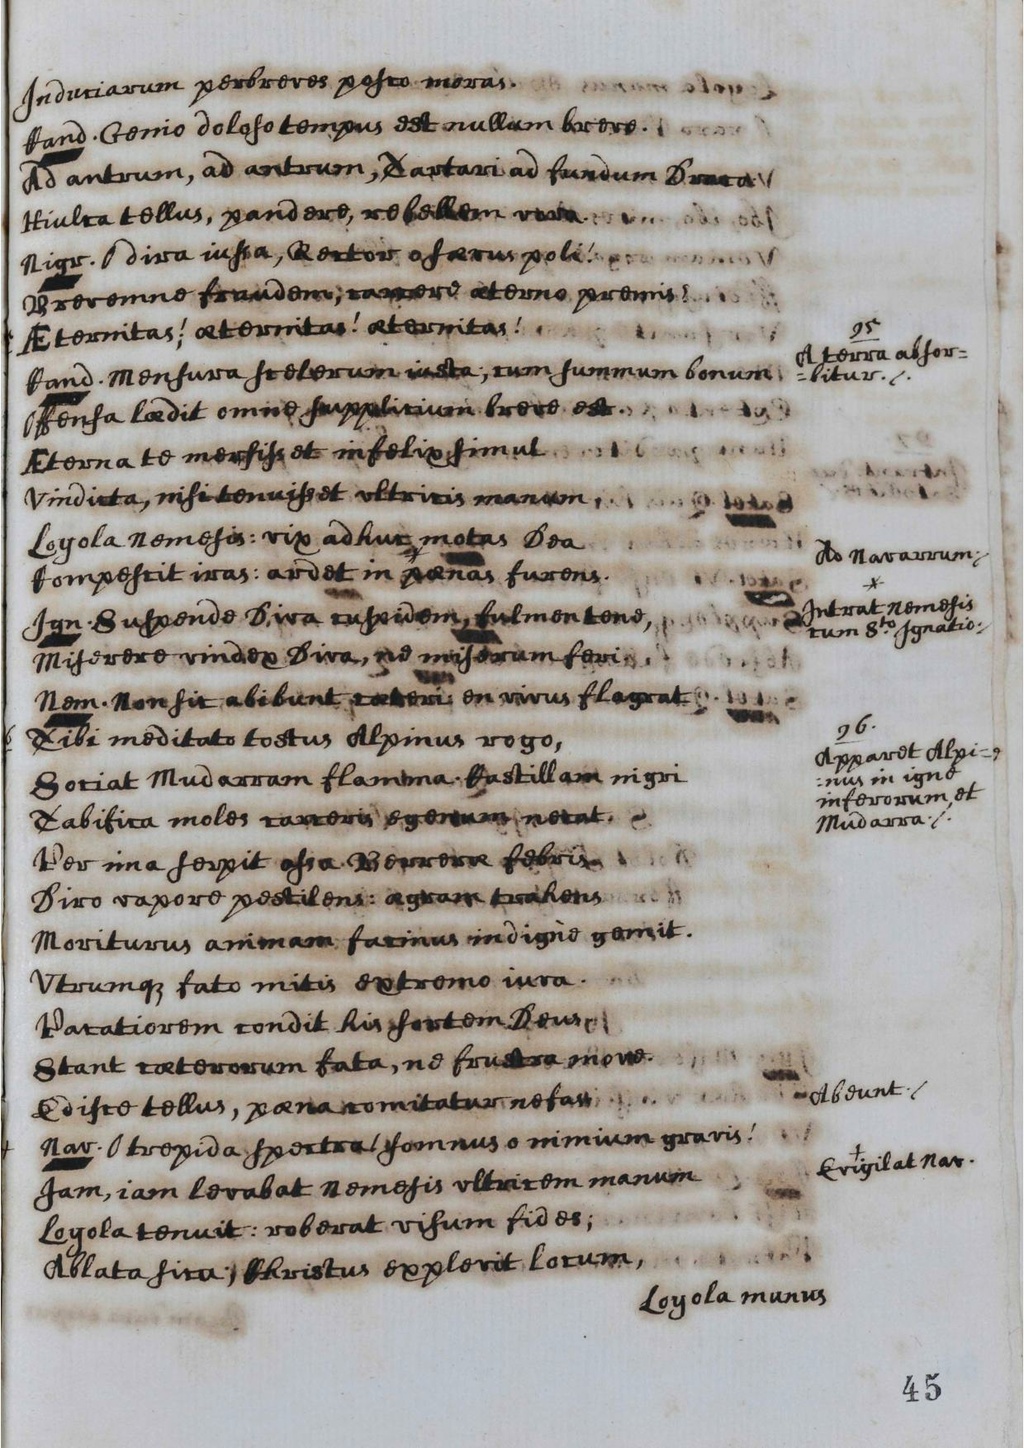 Induciarum perbreves posco moras.
Cand. Genio doloso tempus est nullum breve.
Ad antrum, ad antrum, Tartari ad fundum
Hiulca tellus, pandere, rebellem vora.
Nigr. O dira iussa, Rector o sævus poli!
Brevemne fraudem, carcere æterno premis?
Æternitas! æternitas! æternitas!
95
A terra absor=
=bitur. /.
Cand. Mensura scelerum iusta, cum summum bonum
Offensa lædit omne supplicium breve est.
Æterna te mersisset infelix simul
Vindicta, nisi tenuisset ultricis manum,
Loyola Nemesis: vix adhuc motas Dea
Ad Navarrum /.
Compescit iras: ardet in pœnas furens.
+
Intrat Nemesis
cum Sto Ignatio /.
Ign. Suspende Diva cuspidem, fulmen tene,
Miserere vindex Diva, ne miserum feri
Nem. Non sic abibunt cæteri en vivus flagrat
96.
Apparet Alpi=
=nus in igne
inferorum, et
Mudarra. /.
Tibi meditato tostus Alpinus rogo,
Sociat Mudarram flamma. Castillam nigri
Tabifica moles carceris egenum necat.
Per ima serpit ossa Verreræ febris
Diro vapore pestilens: ægram trahens
Moriturus animam facinus indignè gemit.
Utrumq; fato mitis extremo iura.
Pacatiorem condit his sortem Deus,
Stant cæterorum fata, ne frustra move.
Edisce tellus, pœna comitatur nefas
Abeunt. /
Nav. O trepida spectra! somnus o nimium gravis!
+
Evigilat Nav.
Jam, iam levabat Nemesis ultricem manum
Loyola tenuit: roberat visum fides;
Ablata sica; Christus explevit locum,
Loyola munus
45